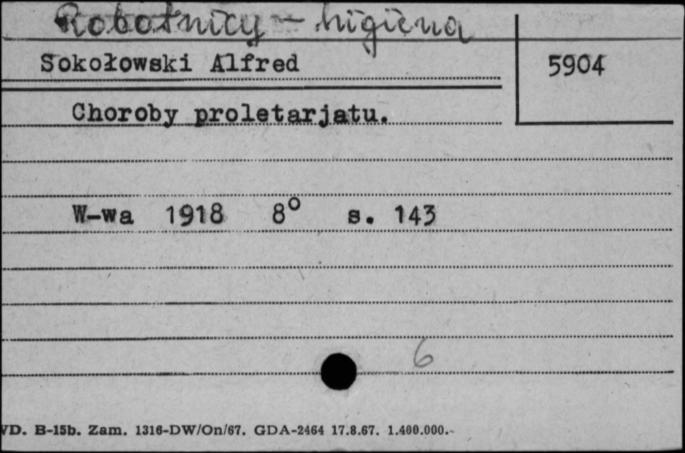 Robotnicy - higiena
Sokołowski Alfred
5904
Choroby proletarjatu.
W-wa 1918 8° s. 143
6
VD. B-15b. Zam. 1316-DW/On/67. GDA-2464 17.8.67. 1.400.000.-